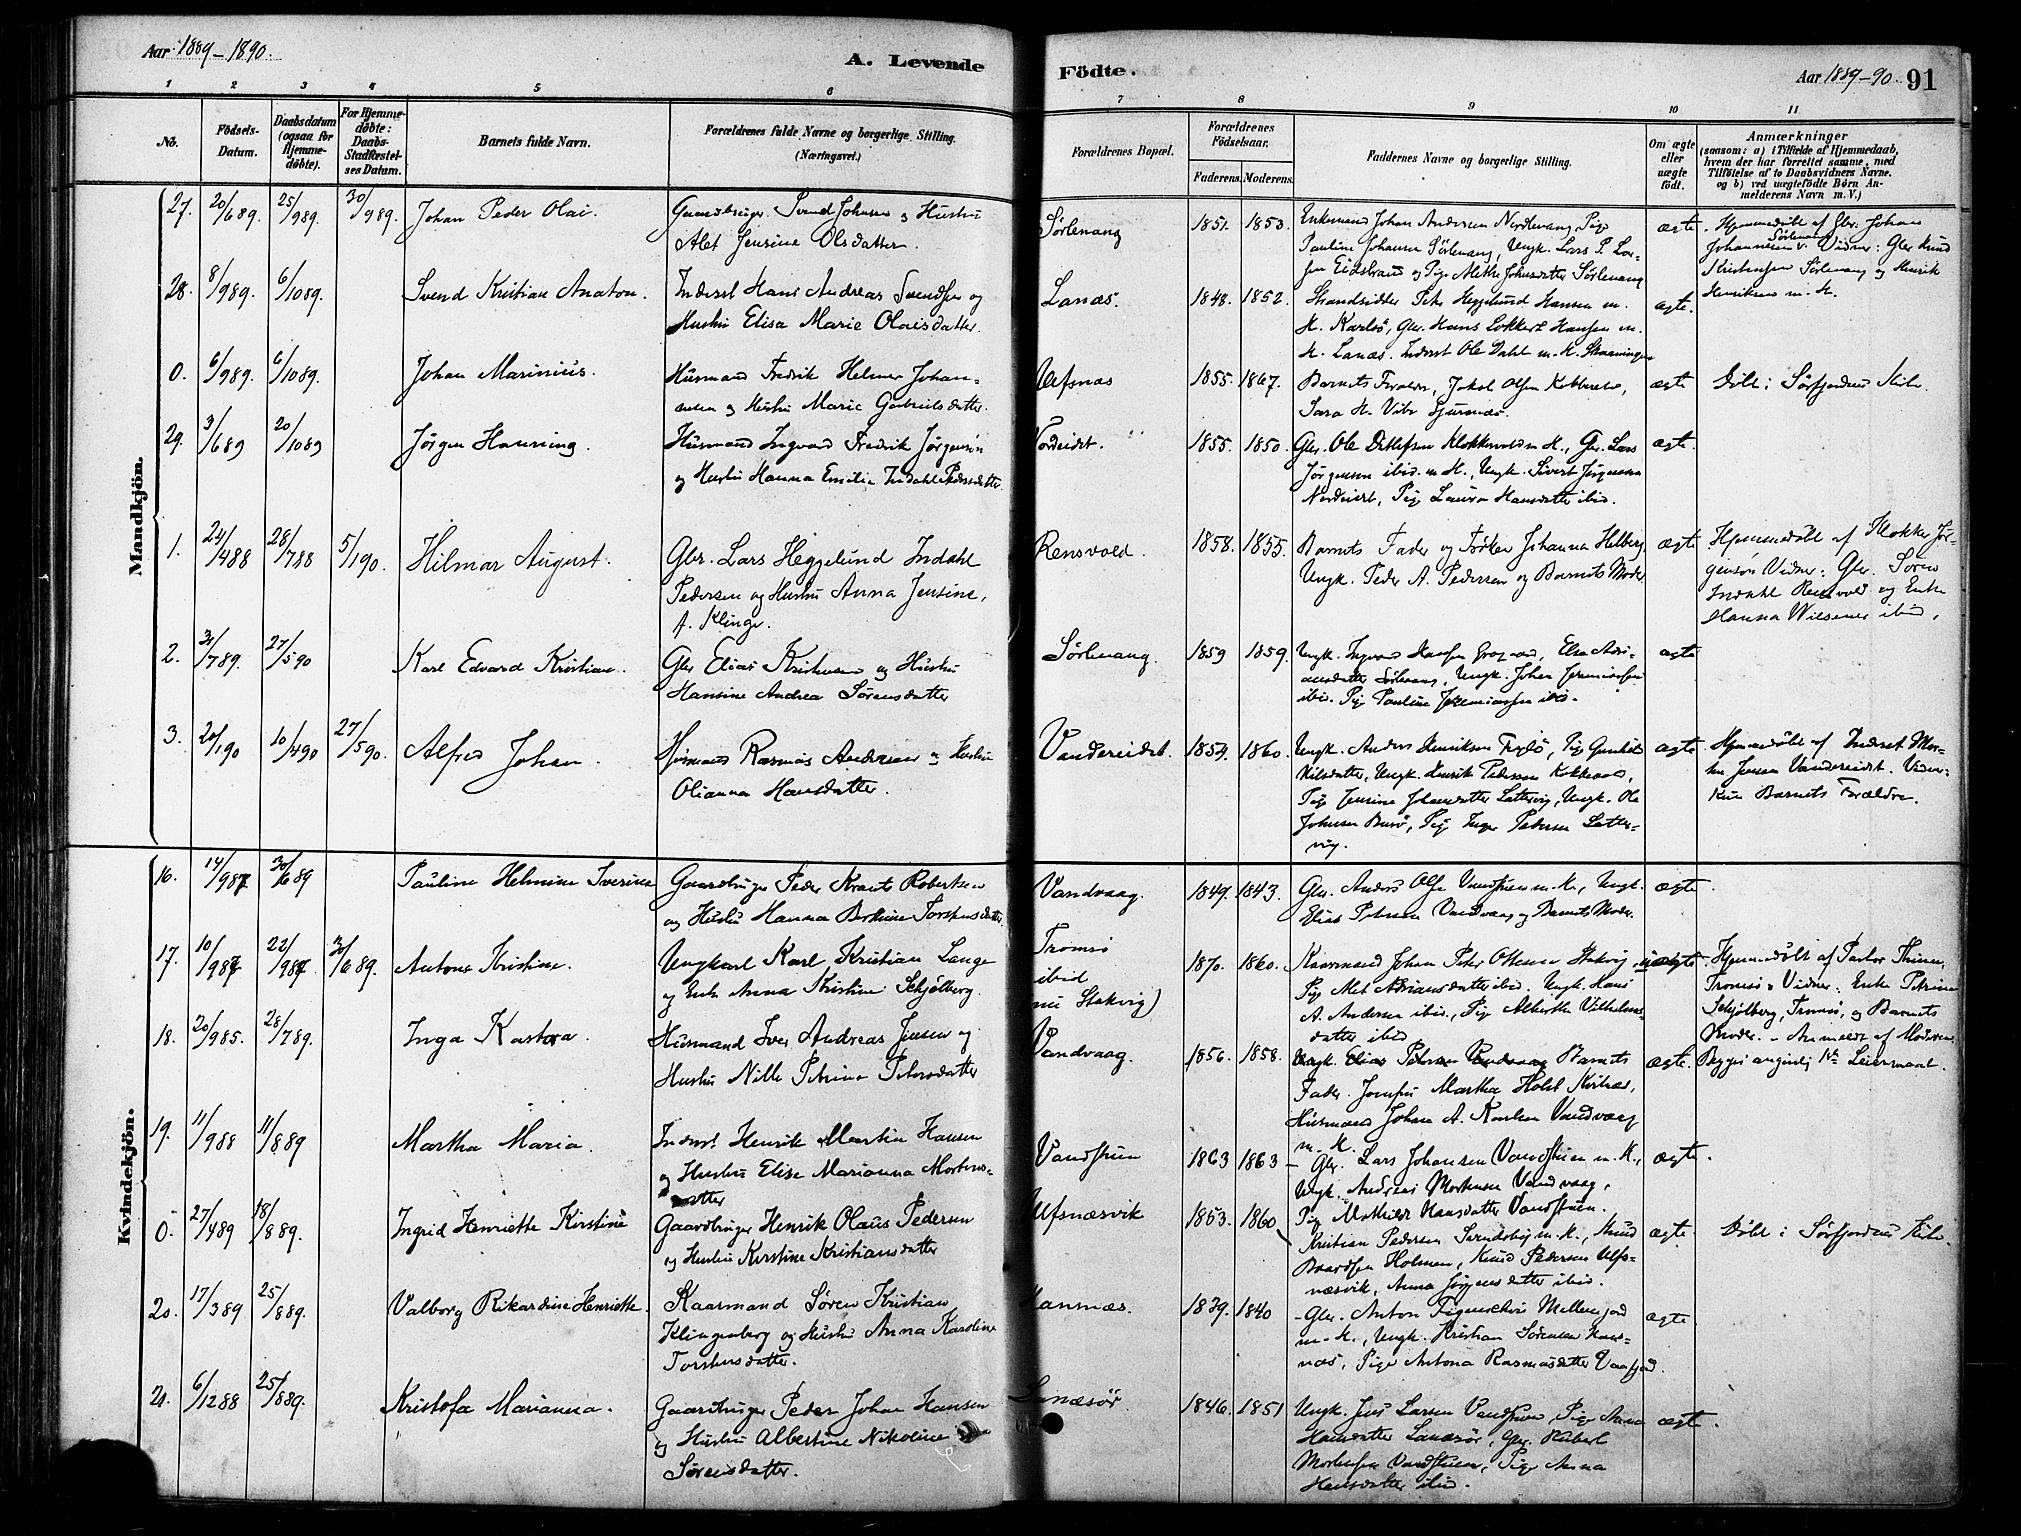 Aar 1889–1890.
A. Levende
Födte.
Aar 1889–90
91
1 2 3 4 5 6 7 8 9 10 11
No.
Födsels-Datum.
Daabsdatum (ogsaa for Hjemme-döbte).
For Hjemme-döbte: Daabs-Stadfæstel-ses Datum.
Barnets fulde Navn.
Forældrenes fulde Navne og borgerlige Stilling. (Næringsvei.)
Forældrenes Bopæl.
Forældrenes Födselsaar.
Faderens. Moderens.
Faddernes Navne og borgerlige Stilling.
Om ægte eller uægte födt.
Anmærkninger
(saasom: a) i Tilfælde af Hjemmedaab,
hvem der har forrettet samme, med
Tilföielse af to Daabsvidners Navne,
og b) ved uægtefödte Börn An-
melderens Navn m.V.)
Mandkjön.
27. 20/689. 25/989. 30/989. Johan Peder Olai. Gaardbruger Svend Johnsen og Hustru
Alet Jensine Olsdatter.
Sørlenang 1851. 1853. Enkemand Johan Andersen Nordlenang, Pige
Pauline Johansen Sørlenang, Ungk. Lars P. Lar-
sen Eidstrand og Pige Alethe Johnsdatter Sørlenang
ægte. Hjemmedøbt af Gbr. Johan
Johannesen Sørlenang. Vidner: Gbr Knud
Kristensen Sørlenang og Henrik
Henriksen m. H.
28. 8/989. 6/1089. Svend Kristian Anaton. Inderst Hans Andreas Svendsen og
Hustru Elisa Marie Olaisdatter.
Lanæs. 1848. 1852. Strandsidder Peter Heggelund Hansen m.
H. Karlsø, Gbr. Hans Lokkert Hansen m.
H. Lanæs. Inderst Ole Dahl m. H. Skaaningen
ægte.
0. 6/989. 6/1089. Johan Marinius. Husmand Fredrik Helmer Johan-
nesen og Hustru Marie Gabrielsdatter.
Ulfsnæs 1855. 1867. Barnets Forældre, Jakob Olsen
Sara H.
ægte Døbt i Sørfjordens Kirke.
29. 3/689 20/1089 Jörgen Hanning. Husmand Ingvard Fredrik Jørgensøn
og Hustru Hanna Emilie Indahl Pedersdatter
Nordeidet. 1855. 1850. Gbr. Ole Ditlefsen Klokkervold m. H., Gbr. Lars
Jørgensen ibid. m. H., Ungk. Sivert Jørgensen
Nordeidet, Pige Laura Hansdatter ibid.
ægte.
1. 24/488 28/788 5/190. Hilmar August. Gbr. Lars Heggelund Indahl
Pedersen og Hustru Anna Jensine,
f. Klinge.
Rensvold. 1858. 1855. Barnets Fader og Frøken Johanna Helberg,
Ungk. Peder A. Pedersen og Barnets Moder
ægte Hjemmedøbt af Klokker Jør-
gensøn Vidner: Gbr. Søren
Indahl Rensvold og Enke
Hanna Wilsener ibid.
2. 31/789. 27/590 Karl Edvard Kristian. Gbr Elias Kristensen og Hustru
Hansine Andrea Sørensdatter
Sørlenang. 1859 1859. Ungk. Ingvard Hansen, Elen Adri-
ansdatter Sørlenang, Ungk. Johan Jeremiassen
ibid. Pige Pauline Jeremiassen ibid.
ægte
3. 20/190 10/490 27/590. Alfred Johan. Husmand Rasmus Andersen og Hustru
Olianna Hansdatter.
Vandereidet. 1854. 1860. Ungk. Anders Henriksen, Pige Gunhild
Nilsdatter, Ungk. Henrik Pedersen,
Pige Jensine Johansdatter Lattervig, Ungk. Ole
Johnsen, Pige Inger Pedersen Latter-
vig.
ægte Hjemmedøbt af Inderst Mor-
ten Jensen Vandereidet. Vidner-
kun Barnets Forældre.
Kvindekjön.
16. 14/987. 30/689 Pauline Helmine Iverine Gaardbruger Peder Krantz Robertsen
og Hustru Hanna Berthine Torstensdatter
Vandvaag. 1849. 1843. Gbr. Anders Olsen Vandstuen m. H., Ungk.
Elias Petersen Vandvaag og Barnets Moder.
ægte.
17. 10/987 22/987 30/689. Antone Kristine. Ungkarl Karl Kristian Lange
og Enke Anna Kristine Schjølberg.
Tromsø
ibid
nu Stakvig) 1870. 1860. Kaarmand Johan Peter Ottesen Stakvig,
Pige Alet Adriansdatter ibid. Ungk. Hans
A. Andersen ibid., Pige Alberthe Vilhelms-
datter ibid
uægte. Hjemmedøbt af Pastor,
Tromsø. Vidner: Enke Petrine
Schjølberg, Tromsø, og Barnets
Moder. – Anmeldt af Moderen.
Begges angivelig 1ste Leiermaal.
18. 20/985. 28/789. Inga Kastora. Husmand Iver Andreas Jensen og
Hustru Nille Petrine Petersdatter
Vandvaag. 1856. 1858. Ungk. Elias Petersen Vandvaag Barnets
Fader. Jomfru Martha Holst,
Husmand Johan A. Karlsen Vandvaag
m. H.
ægte.
19. 11/988 11/889 Martha Maria. Inderst Henrik Martin Hansen
og Hustru Elise Marianna Mortens-
datter
Vandstuen 1863 1863 – Gbr. Lars Johansen Vandstuen m. H.,
Ungk. Andreas Mortensen Vandvaag,
Pige Mathilde Hansdatter Vandstuen.
ægte.
0. 27/489 18/889. Ingrid Henriette Kirstine Gaardbruger Henrik Olaus Pedersen
og Hustru Kirstine Kristiansdatter
Ulfsnæsvik 1853. 1860 Kristian Pedersen Svendsby m. H., Knud
Baardsen Holmen, Knud Pedersen Ulfs-
næsvik, Anna Jørgensdatter ibid.
ægte. Døbt i Sørfjordens Kirke.
20. 17/389 25/889. Valborg Rikardine Henriette. Kaarmand Søren Kristian
Klingenberg og Hustru Anna Karoline
Torstensdatter.
Hansnæs. 1839. 1840 – Gbr. Anton Figenschou Mellemjord
m. H., Ungk. Kristian Sørensen Hans-
næs, Pige Antona Rasmusdatter
ægte.
21. 6/1288 25/889. Kristofa Marianna. Gaardbruger Peder Johan Hansen
og Hustru Albertine Nikoline
Sørensdatter.
Lanæsør. 1846. 1851 Ungk. Jens Larsen Vandstuen, Pige Anna
Hansdatter Lanæsør, Gbr. Robert
Mortensen Vandstuen, Pige Anna
Hansdatter ibid.
ægte.